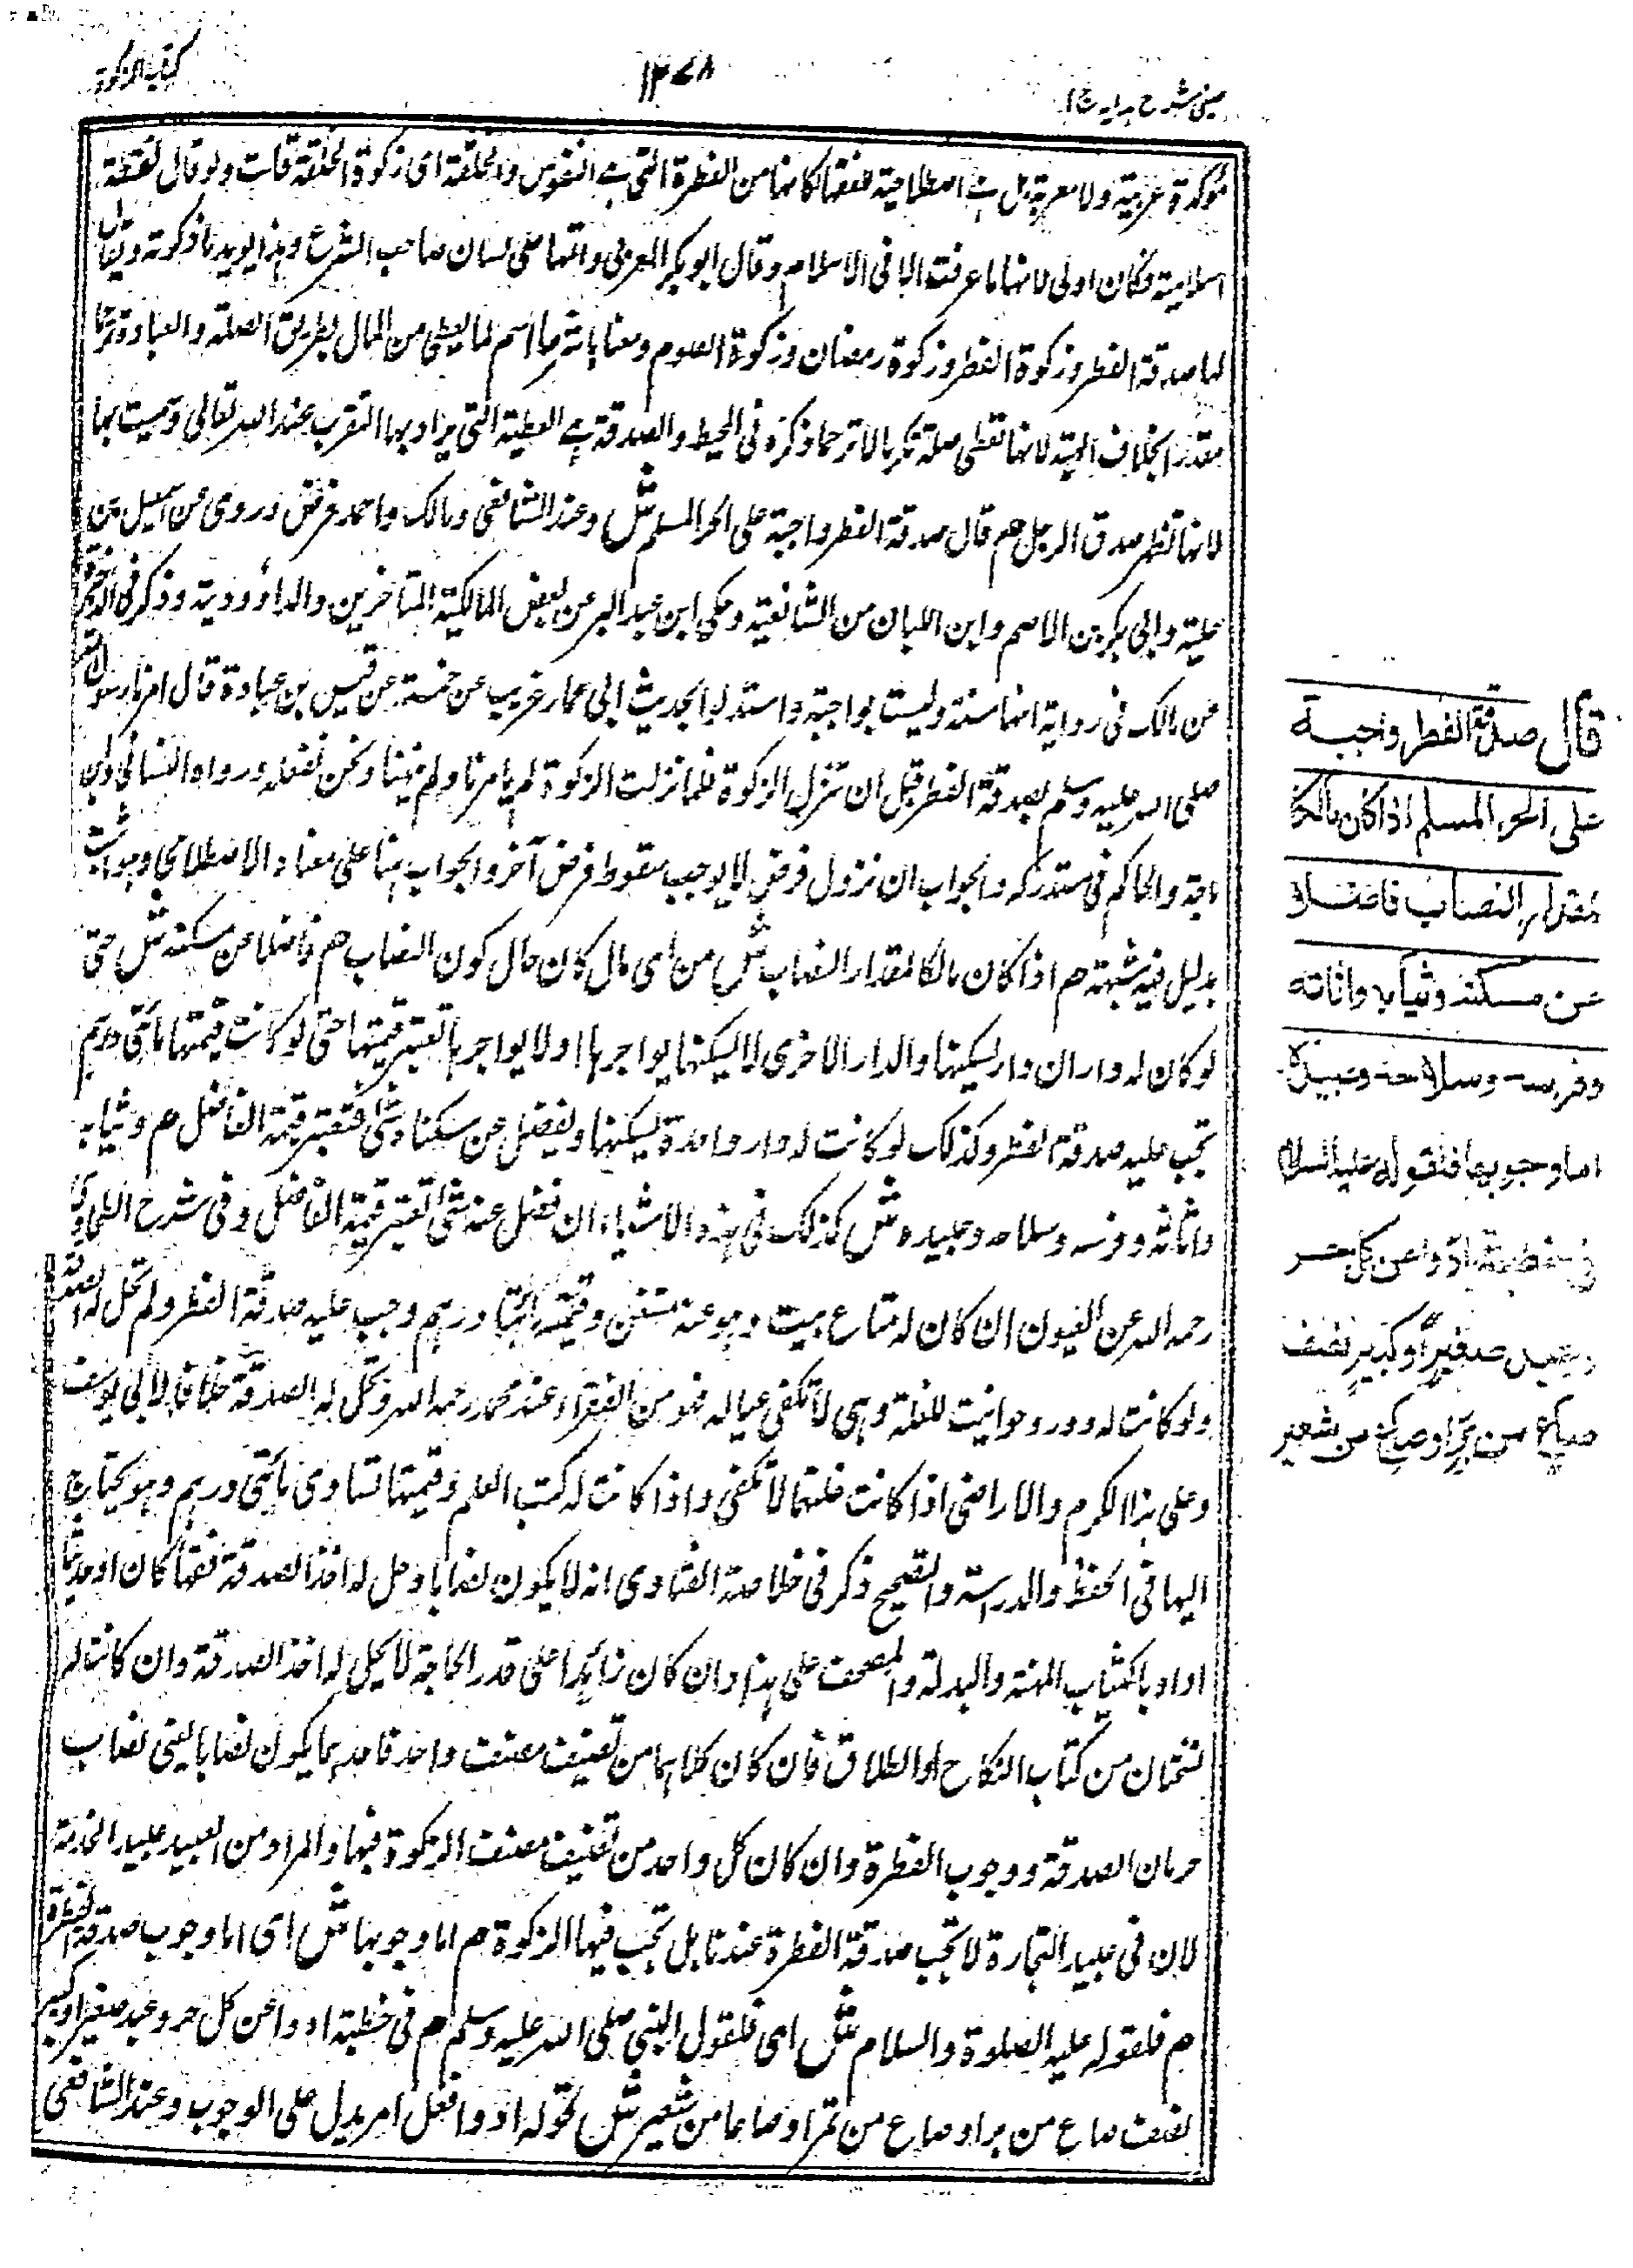 عینی شرح ہدایہ ج ۱
۱۲۷۸
کتاب الزکوة
مولدة عربية ولا معربة بل هي اصطلاحية للفقهاء كانها من الفطرة التي هي النفوس والخلقة اى زكوة الخلقة قلت ولو قال لفظة
اسلامية فكان اولى لانها ما عرفت الا فى الاسلام وقال ابو بكر العربى وانها على لسان صاحب الشرع وهذا يويد ما ذكرته ويقال
لها صدقة الفطر وزكوة الفطر وزكوة رمضان وزكوة الصوم ومعناها شرعا اسم لما يعطى من المال بطريق الصلة والعبادة ترحما
مقدرا بخلاف الهبة لانها تعطى صلة تكرما لا ترحما ذكره فى المحيط والصدقة هي العطية التى يراد بها التقرب عند الله تعالى وسميت بها
لانها تظهر صدق الرجل م قال صدقة الفطر واجبة على الحر المسلم ش وعند الشافعى ومالك واحمد فرض وروى عن اسمعيل بن
علية وابى بكر بن الاصم وابن اللبان من الشافعية وحكى ابن عبد البر عن بعض المالكية المتاخرين والداؤودية وذكر فى الذخيرة
عن مالك فى رواية انها سنة وليست بواجبة واستدلوا بحديث ابى عمار غريب عن خمسة عن قيس بن عبادة قال امرنا رسول الله
صلى الله عليه وسلم بصدقة الفطر قبل ان تنزل الزكوة فلما نزلت الزكوة لم يامرنا ولم ينهنا ونحن نفعله ورواه النسائى وابن
ماجة والحاكم فى مستدركه والجواب ان نزول فرض لا يوجب سقوط فرض آخر والجواب هنا على معناه الاصطلاحى وهو ما ثبت
بدليل فيه شبهة م اذا كان مالكا لمقدار النصاب ش من اى مال كان حال كون النصاب م فاضلا عن مسكنه ش حتى
لو كان له داران دار يسكنها والدار الاخرى لا يسكنها يواجرها او لا يواجرها تعتبر قيمتها حتى لو كانت قيمتها مأتى درهم
تجب عليه صدقة الفطر وكذلك لو كانت له دار واحدة يسكنها ويفضل عن سكناه شئ فتعتبر قيمة الفاضل م وثيابه
واثاثه وفرسه وسلاحه وعبيده ش كذلك فى هذه الاشياء ان فضل عنه شئ تعتبر قيمة الفاضل وفى شرح الطحاوى
رحمه الله عن العيون ان كان له متاع بيت وهو عنه مستغن وقيمته مأتا درهم وجب عليه صدقة الفطر ولم تحل له الصدقة
ولو كانت له دور وحوانيت للغلة وهى لا تكفى عياله فهو من الفقراء عند محمد رحمه الله وتحل له الصدقة خلافا لابى يوسف
وعلى هذا الكرم والاراضى اذا كانت غلتها لا تكفى واذا كانت له كتب العلم وقيمتها تساوى مأتى درهم وهو يحتاج
اليها فى الحفظ والدراسة والتصحيح ذكر فى خلاصة الفتاوى انه لا يكون نصابا وحل له اخذ الصدقة فقها كان او حديثا
او ادبا كثياب المهنة والبدلة والمصحف على هذا وان كان زائدا على قدر الحاجة لا يحل له اخذ الصدقة وان كانت له
نسختان من كتاب النكاح او الطلاق فان كان كلاهما من تصنيف مصنف واحد فاحدهما يكون نصابا يعنى نصاب
حرمان الصدقة ووجوب الفطرة وان كان كل واحد من تصنيف مصنف الزكوة فيها والمراد من العبيد عبيد الخدمة
لان فى عبيد التجارة لا تجب صدقة الفطرة عندنا بل تجب فيها الزكوة م اما وجوبها ش اى اما وجوب صدقة الفطر
م فلقوله عليه الصلوة والسلام ش اى فلقول النبى صلى الله عليه وسلم م فى خطبته ادوا عن كل حر وعبد صغير او كبير
نصف صاع من بر او صاع من تمر او صاعا من شعير ش قوله ادوا فعل امر يدل على الوجوب وعند الشافعى
قال صدقة الفطر واجبة
على الحر المسلم اذا كان مالكا
لمقدار النصاب فاضلا
عن مسكنه وثيابه واثاثه
وفرسه وسلاحه وعبيده
اما وجوبها فلقوله عليه السلام
فى خطبته ادوا عن كل حر
وعبد صغير او كبير نصف
صاع من بر او صاع من شعير